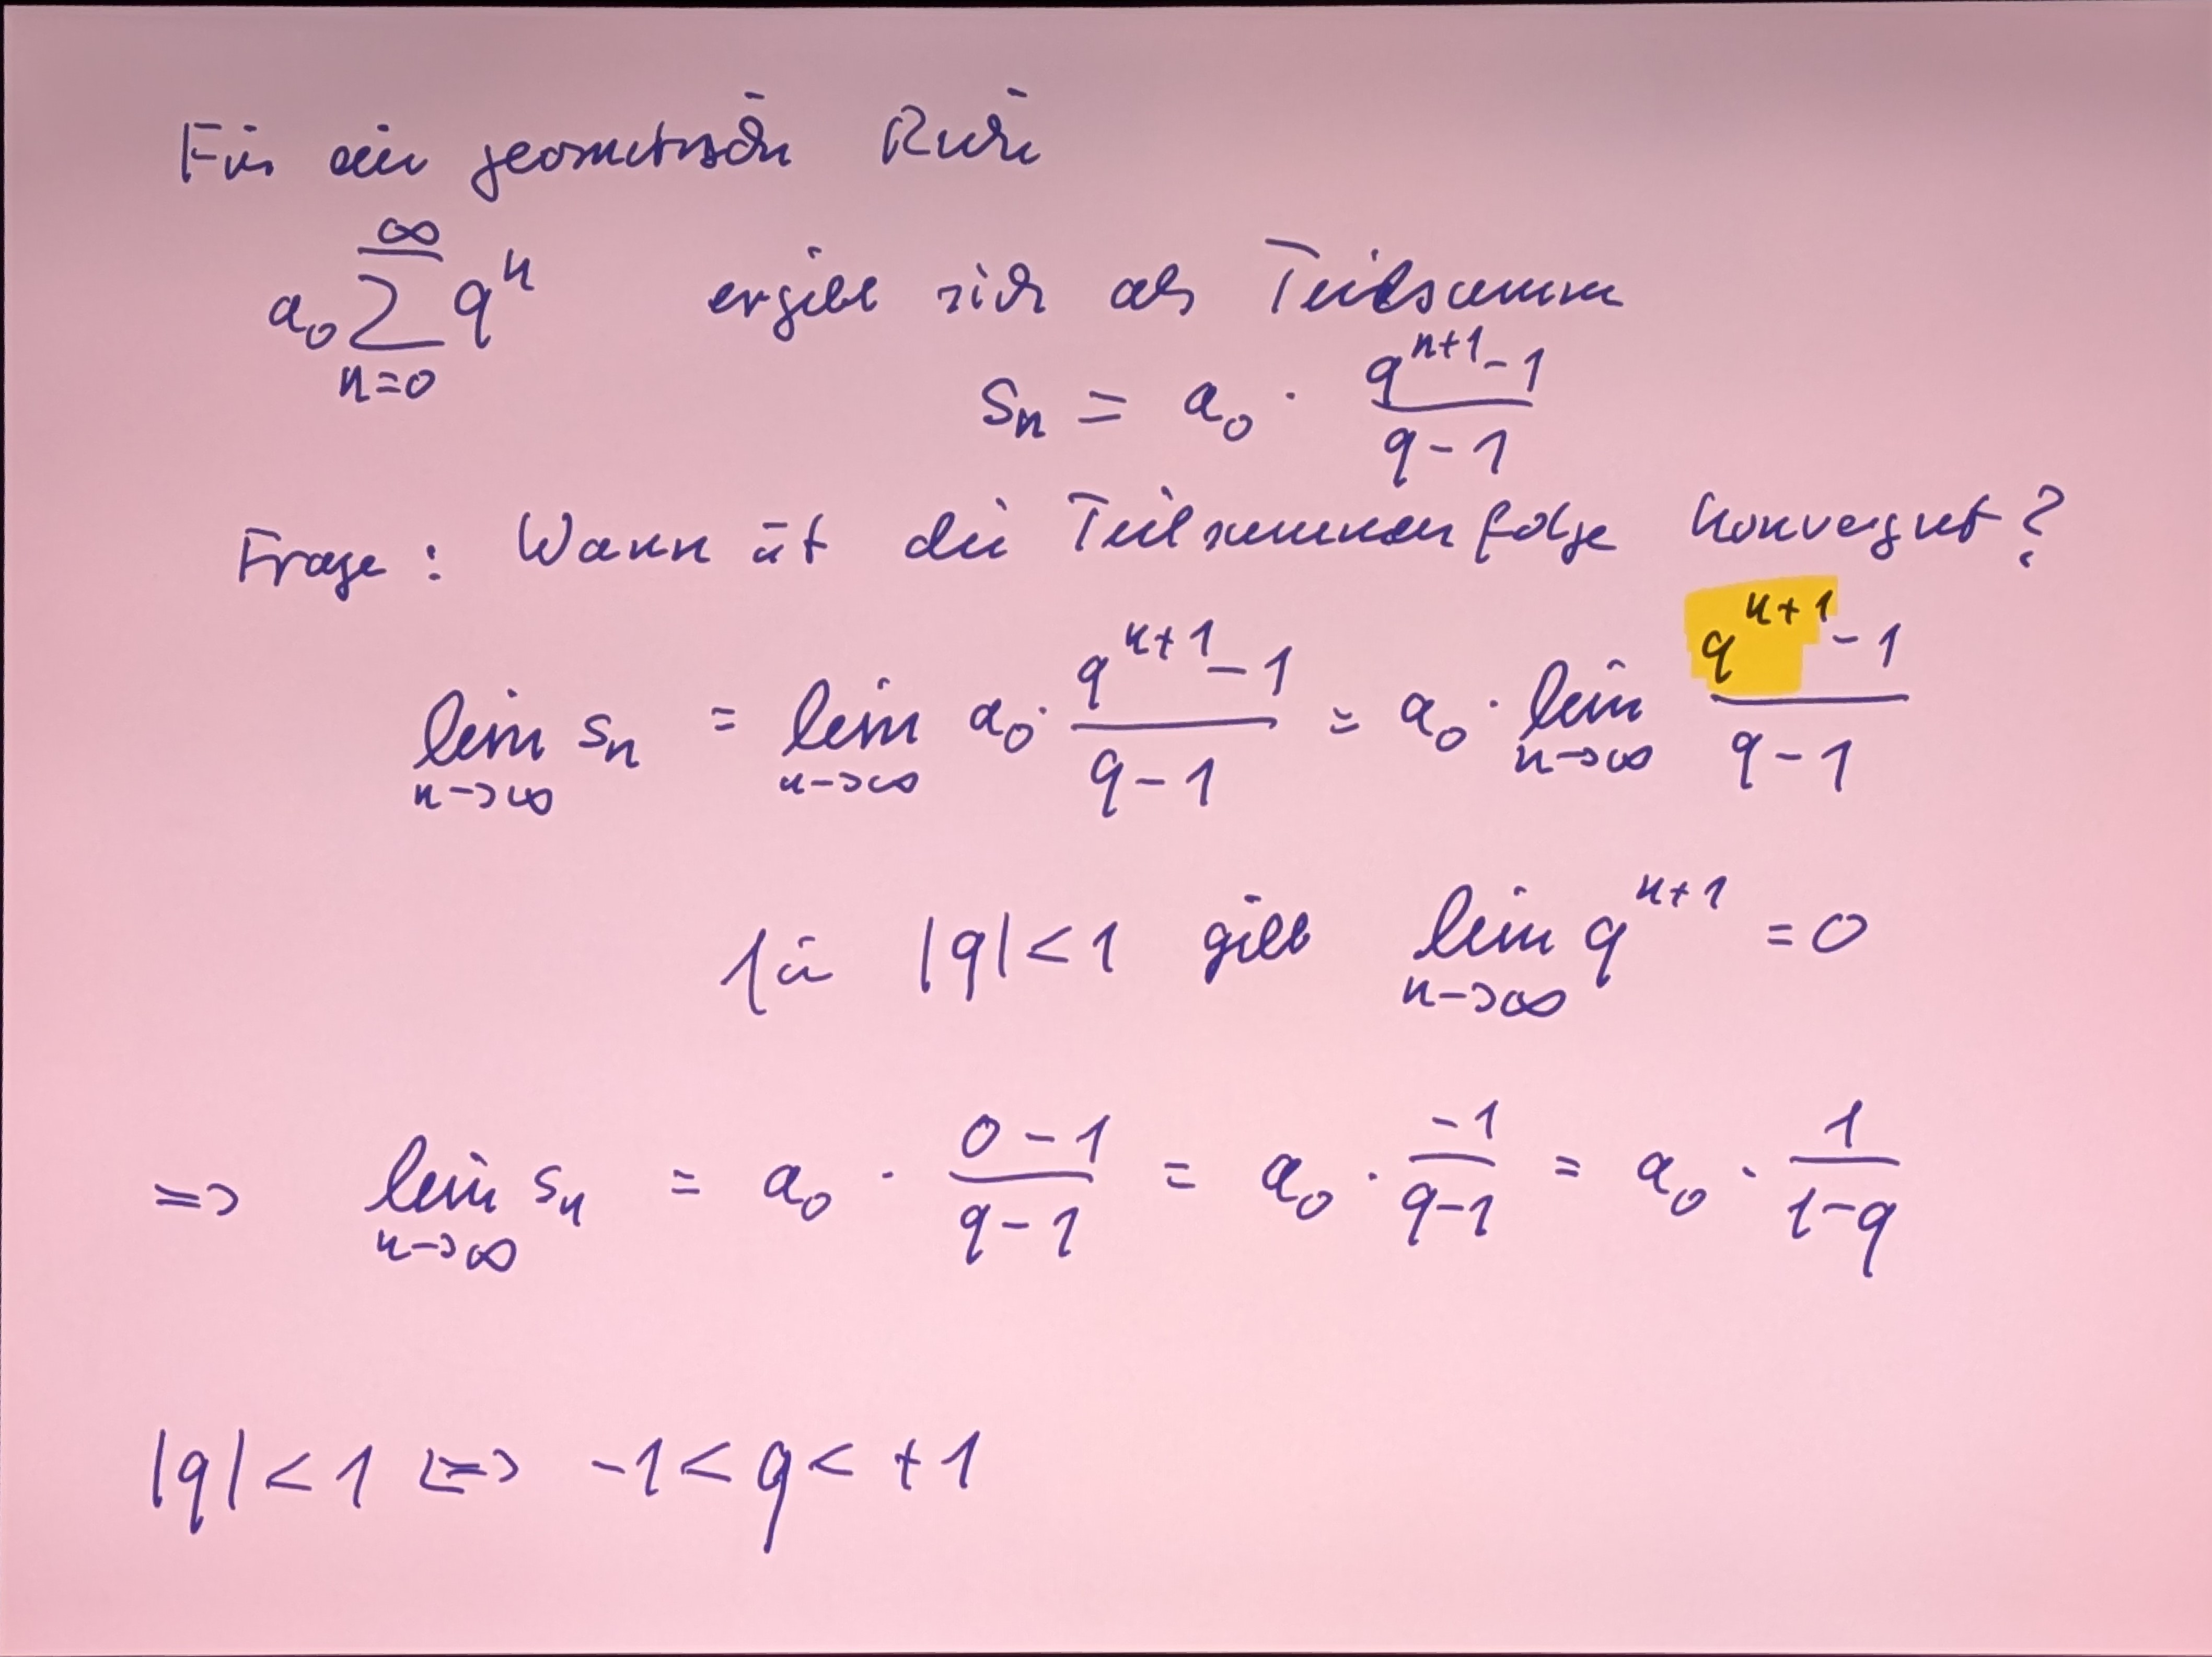 Für eine geometrische Reihe
a₀ ∑_{n=0}^{∞} qⁿ ergibt sich als Teilsumme
sₙ = a₀ · (q^{n+1} - 1)/(q - 1)
Frage: Wann ist die Teilsummenfolge konvergent?
lim_{n->∞} sₙ = lim_{n->∞} a₀ · (q^{n+1} - 1)/(q - 1) = a₀ · lim_{n->∞} (q^{n+1} - 1)/(q - 1)
für |q| < 1 gilt lim_{n->∞} q^{n+1} = 0
=> lim_{n->∞} sₙ = a₀ · (0 - 1)/(q - 1) = a₀ · (-1)/(q - 1) = a₀ · 1/(1 - q)
|q| < 1 <=> -1 < q < +1